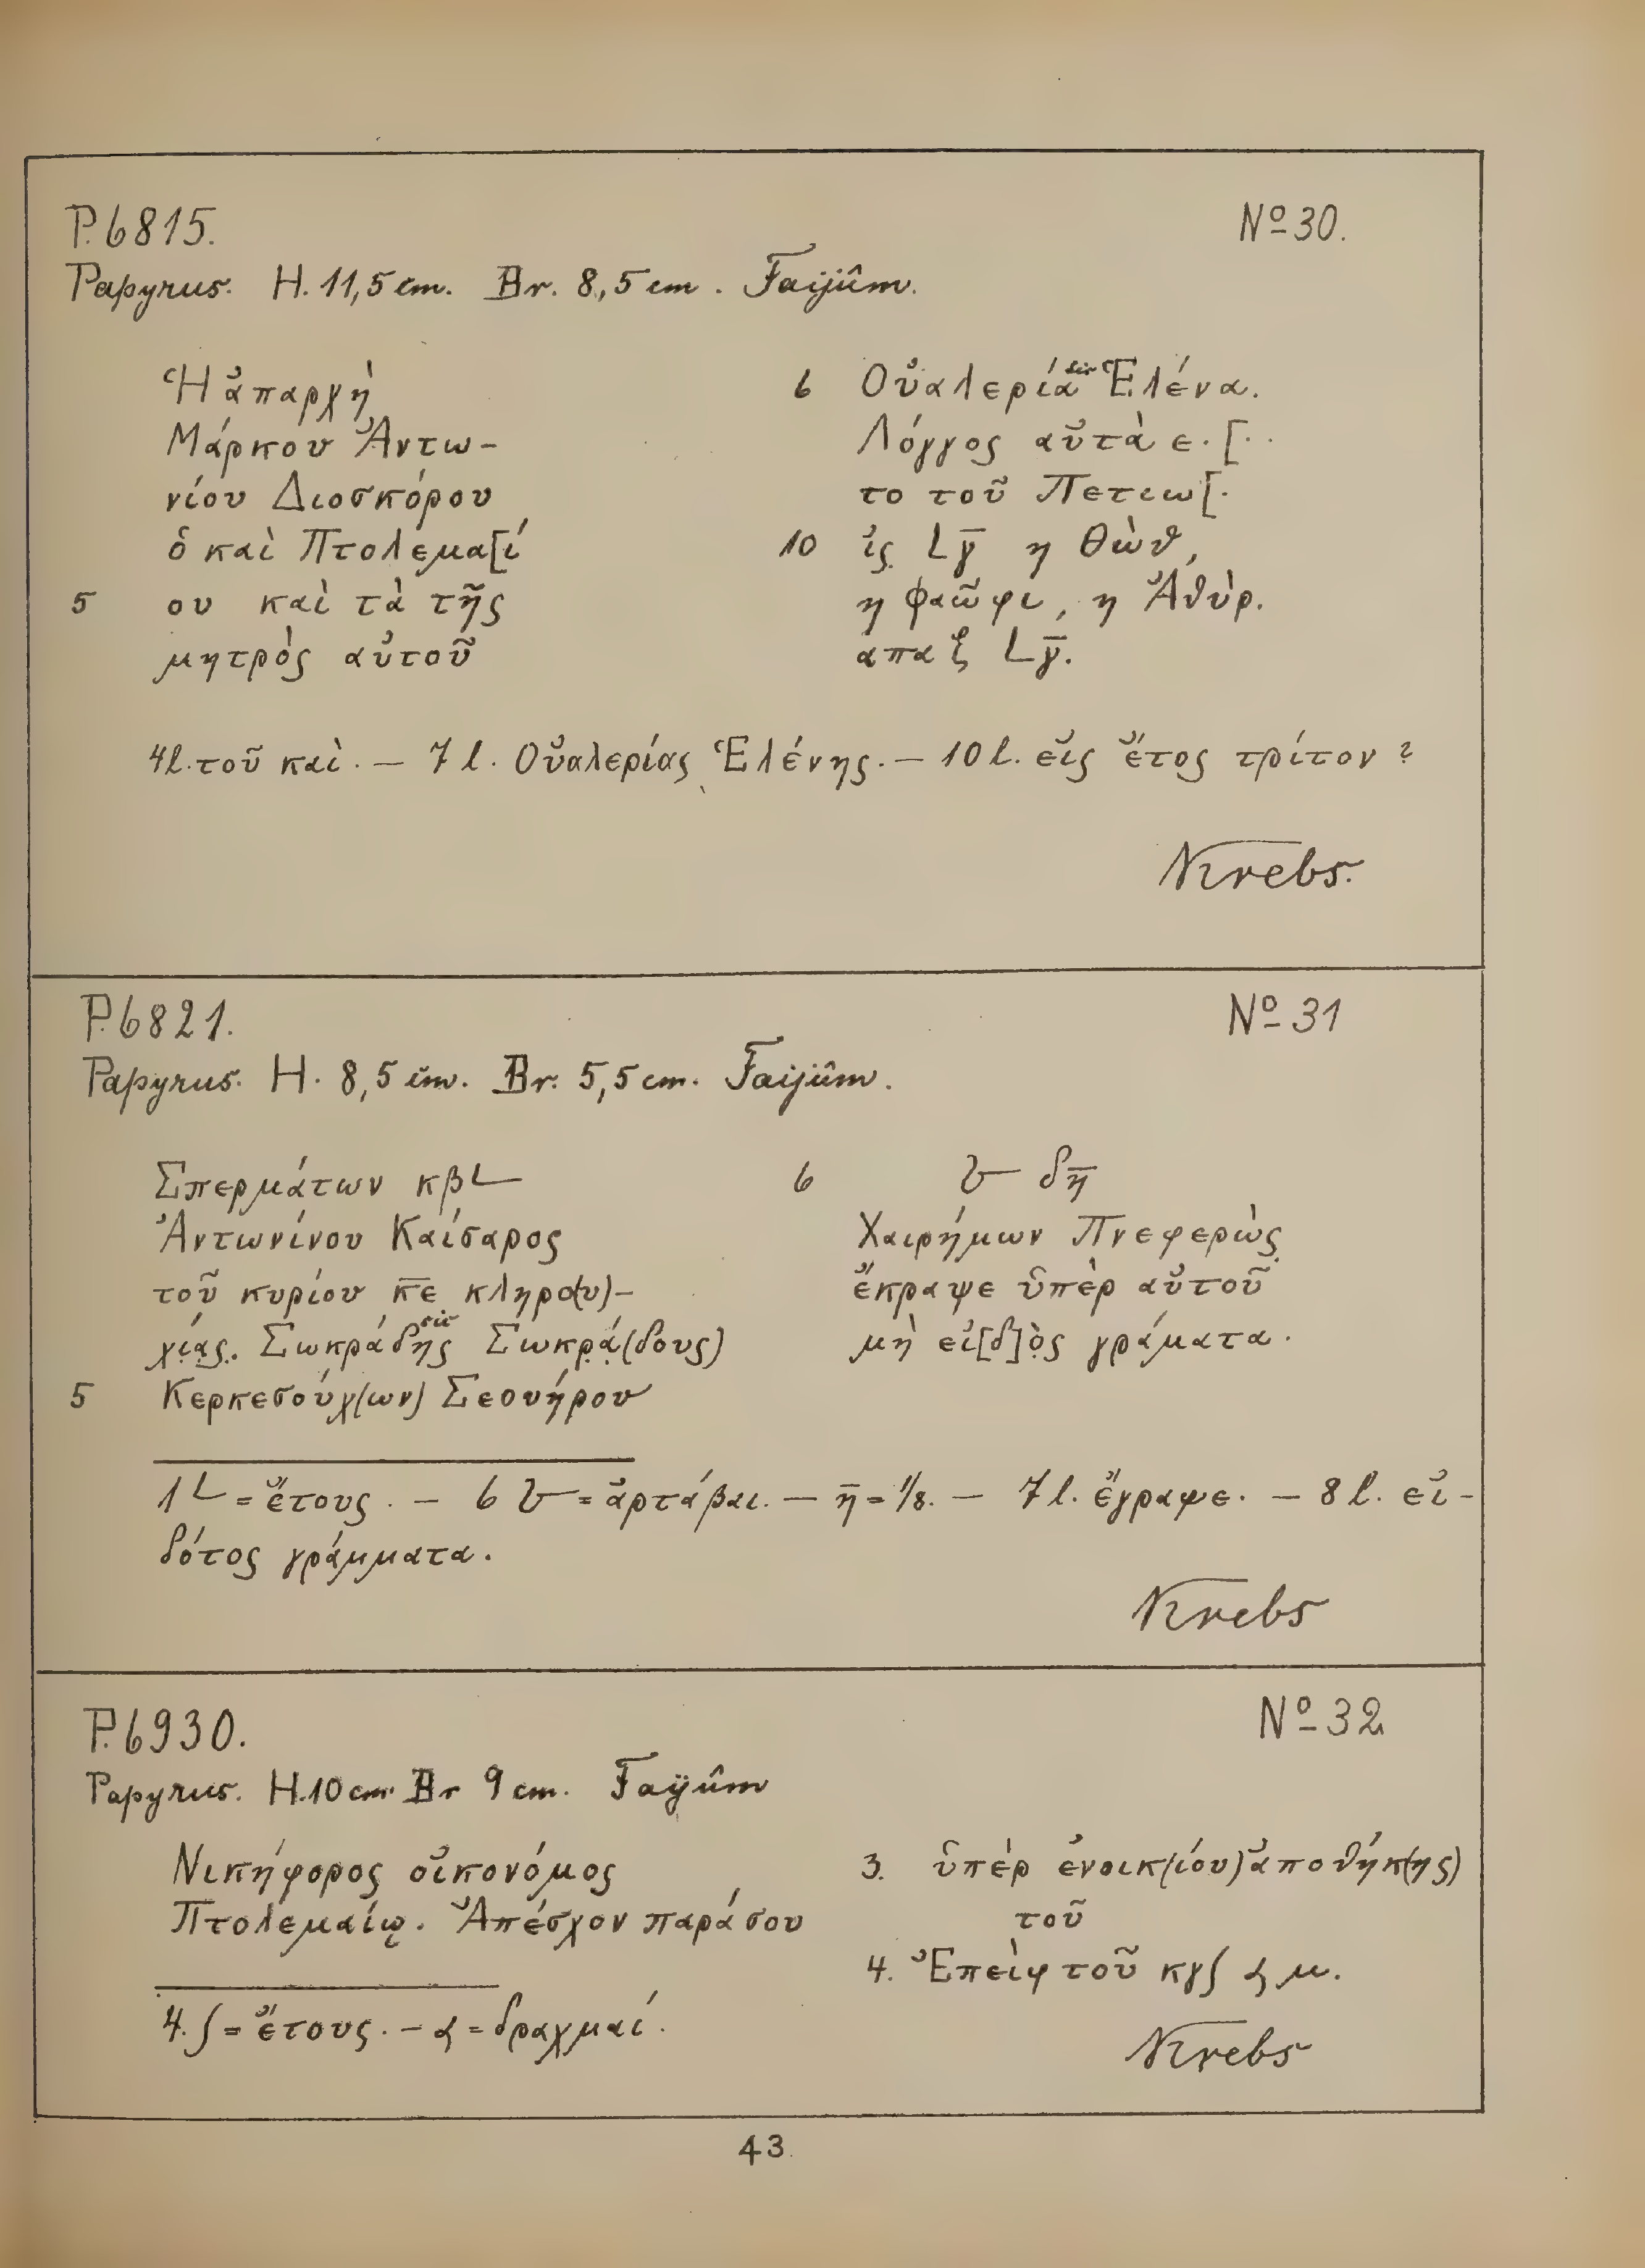 P. 6815. Nº 30.
Papyrus. H. 11,5 cm. Br. 8,5 cm. Faijûm.
Ἡ ἀπαρχὴ
Μάρκου Ἀντω-
νίου Διοσκόρου
ὁ καὶ Πτολεμα[ί
5 ου καὶ τὰ τῆς
μητρὸς αὐτοῦ
6 Οὐαλερία sic Ἑλένα.
Λόγγος αὐτὰ ε.[..
το τοῦ Πετεω[.
10 ἰς L γ̅ η Θὼθ,
η Φαῶφι, η Ἁθὺρ.
απαξ L γ̅.
4 l. τοῦ καὶ. — 7 l. Οὐαλερίας Ἑλένης. — 10 l. εἰς ἔτος τρίτον ?
Krebs.
P. 6821. Nº 31
Papyrus. H. 8,5 cm. Br. 5,5 cm. Faijûm.
Σπερμάτων κβ L
Ἀντωνίνου Καίσαρος
τοῦ κυρίου κ̅ε̅ κληρο(υ)-
χίας. Σωκράδης sic Σωκρά(δους)
5 Κερκεσούχ(ων) Σεουήρου
6 𐅵 δη̅
Χαιρήμων Πνεφερὼς
ἔκραψε ὑπὲρ αὐτοῦ
μὴ εἰ[δ]ὸς γράματα.
1 L = ἔτους. — 6 𐅵 = ἀρτάβαι. — η̅ = 1/8. — 7 l. ἔγραψε. — 8 l. εἰ-
δότος γράμματα.
Krebs
P. 6930. Nº 32
Papyrus. H. 10 cm. Br 9 cm. Faijûm
Νικήφορος οἰκονόμος
Πτολεμαίῳ. Ἀπέσχον παρά σου
3. ὑπὲρ ἐνοικ(ίου) ἀποθήκ(ης)
τοῦ
4. Ἐπεὶφ τοῦ κγ ʃ 𐅻 μ.
4. ʃ = ἔτους. — 𐅻 = δραχμαί.
Krebs
43